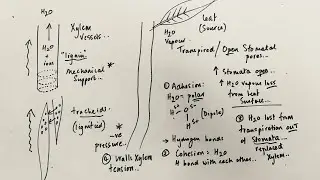 H₂O
Xylem
Vessels..
"lignin"
H₂O
+
ions
mechanical
support..
tracheids
(lignified)
-ve
pressure..
④ walls Xylem
tension..
leaf
(Source)
H₂O
Vapour
Transpired / Open Stomatal
pores..
↑ Stomata open..
↑ H₂O vapour loss
from leaf
surface..
① Adhesion:
H₂O = polar
H - O
H
(Dipole)
→ Hydrogen bonds
② Cohesion = H₂O
H bond with each other..
③ H₂O lost from
transpiration out of
Stomata..
replaced
Xylem..